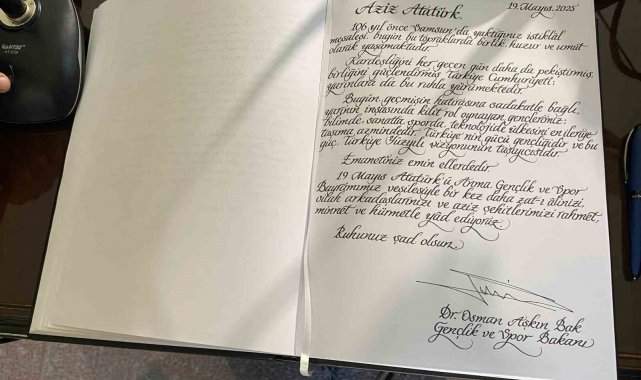 19 Mayıs 2025
Aziz Atatürk,
106 yıl önce Samsun'da yaktığınız istiklâl
meşalesi, bugün bu topraklarda birlik, huzur ve umut
olarak yaşamaktadır.
Kardeşliğini her geçen gün daha da pekiştirmiş,
birliğini güçlendirmiş Türkiye Cumhuriyeti;
yarınlara da bu ruhla yürümektedir.
Bugün, geçmişin hatırasına sadakatle bağlı,
yarının inşasında kilit rol oynayan gençlerimiz;
bilimde, sanatta, sporda, teknolojide ülkesini en ileriye
taşıma azmindedir. Türkiye'nin gücü gençliğidir ve bu
güç, Türkiye Yüzyılı vizyonunun taşıyıcısıdır.
Emanetiniz emin ellerdedir.
19 Mayıs Atatürk'ü Anma, Gençlik ve Spor
Bayramımız vesilesiyle bir kez daha zat-ı âlinizi,
silah arkadaşlarınızı ve aziz şehitlerimizi rahmet,
minnet ve hürmetle yâd ediyoruz.
Ruhunuz şad olsun.
Dr. Osman Aşkın Bak
Gençlik ve Spor Bakanı